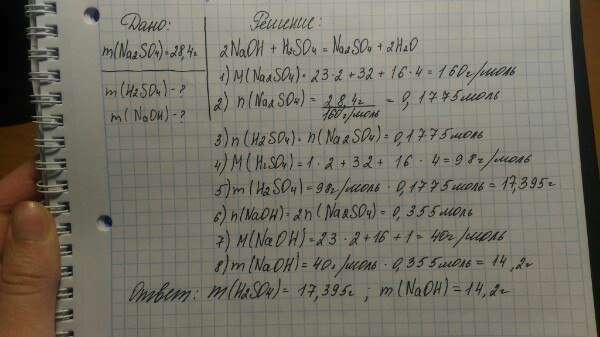 Дано:
m(Na2SO4)=28,4г
m(H2SO4)-?
m(NaOH)-?
Решение:
2NaOH + H2SO4 = Na2SO4 + 2H2O
1) M(Na2SO4)=23·2+32+16·4=160г/моль
2) n(Na2SO4) = 28,4г/160г/моль = 0,1775моль
3) n(H2SO4)=n(Na2SO4)=0,1775моль
4) M(H2SO4)=1·2+32+16·4=98г/моль
5) m(H2SO4)=98г/моль · 0,1775моль=17,395г
6) n(NaOH)=2n(Na2SO4)=0,355моль
7) M(NaOH)=23·2+16+1=40г/моль
8) m(NaOH)=40г/моль · 0,355моль=14,2г
Ответ: m(H2SO4)=17,395г; m(NaOH)=14,2г